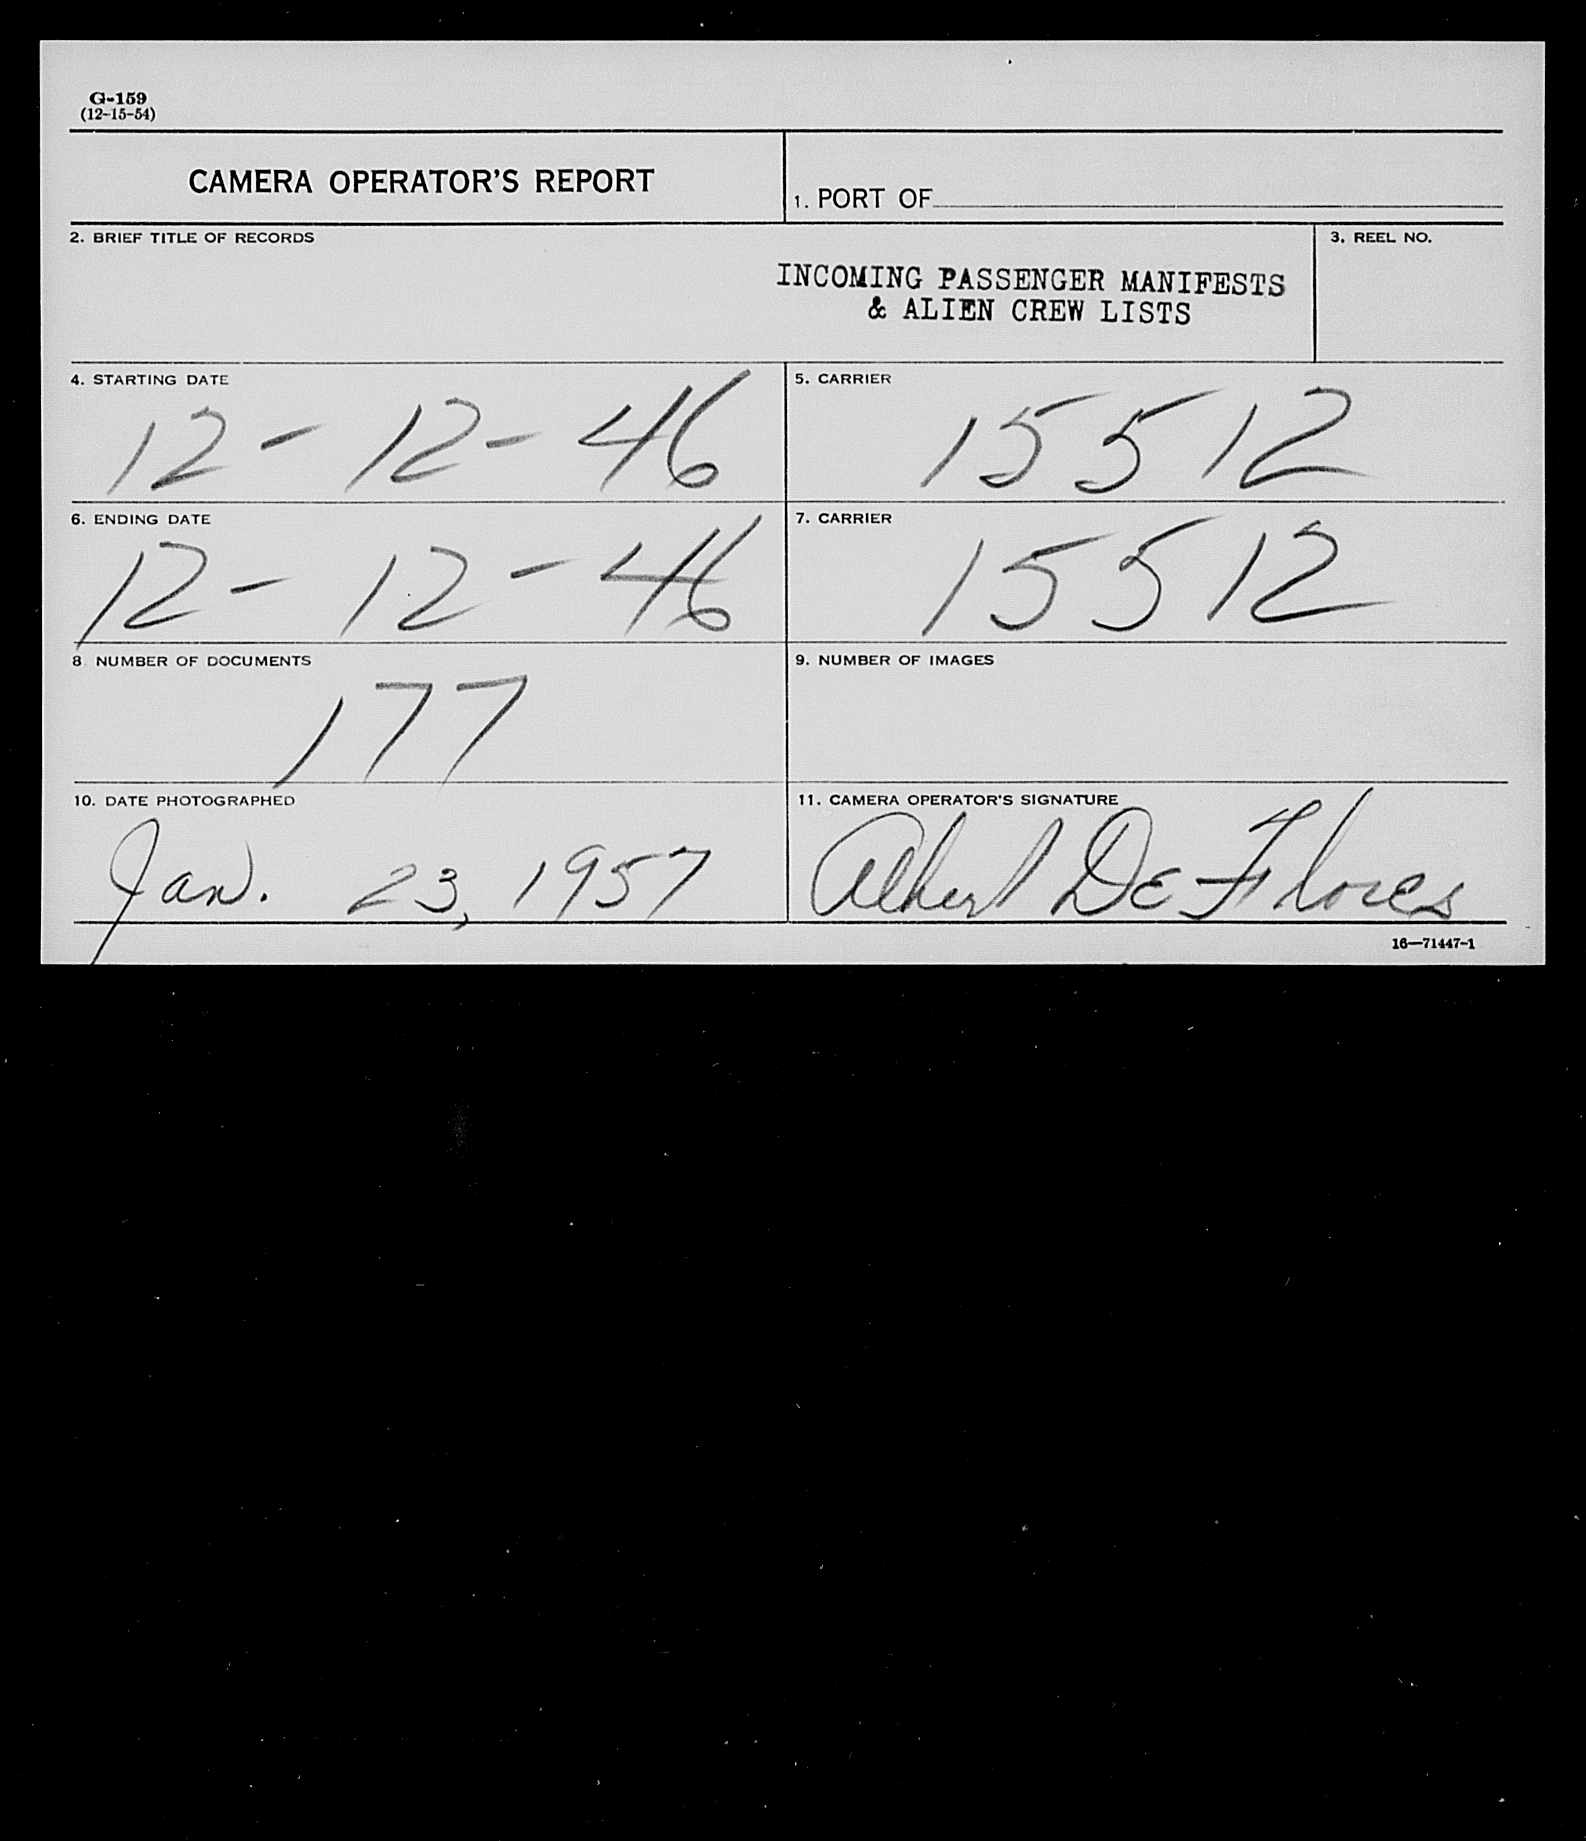 G-159
(12-15-54)
CAMERA OPERATOR'S REPORT
1. PORT OF
2. BRIEF TITLE OF RECORDS
INCOMING PASSENGER MANIFESTS
& ALIEN CREW LISTS
3. REEL NO.
4. STARTING DATE
12-12-46
5. CARRIER
15512
6. ENDING DATE
12-12-46
7. CARRIER
15512
8 NUMBER OF DOCUMENTS
177
9. NUMBER OF IMAGES
10. DATE PHOTOGRAPHED
Jan. 23, 1957
11. CAMERA OPERATOR'S SIGNATURE
Albert DeFlores
16—71447-1